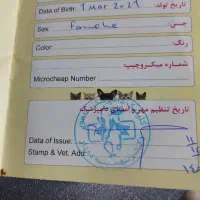 Data of Birth: 1 Mar 2021 تاریخ تولد:
Sex: Famele جنس:
Color: رنگ:
Microcheap Number شماره میکروچیپ:
تاریخ تنظیم مهر و امضای دامپزشک
Data of Issue:
Stamp & Vet. Add: